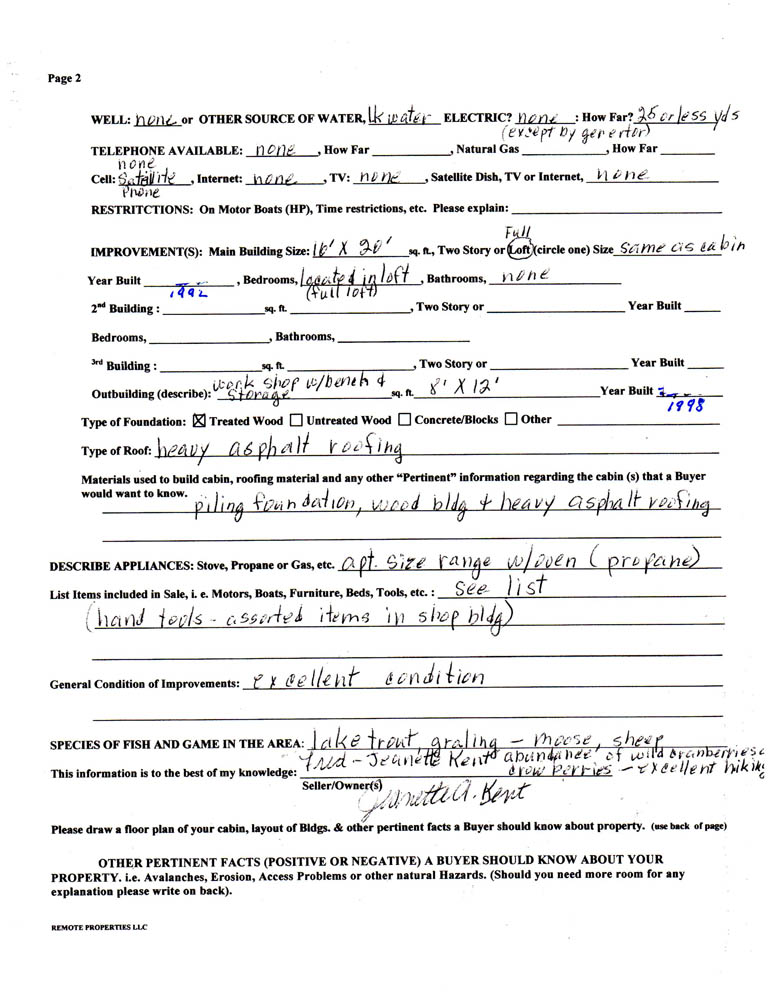 Page 2
WELL: none or OTHER SOURCE OF WATER, Lk water ELECTRIC? none : How Far? 25 or less yds
(except by genertor)
TELEPHONE AVAILABLE: none , How Far , Natural Gas , How Far
none
Cell: Satellite , Internet: none , TV: none , Satellite Dish, TV or Internet, none
Phone
RESTRITCTIONS: On Motor Boats (HP), Time restrictions, etc. Please explain:
Full
IMPROVEMENT(S): Main Building Size: 16' X 20' sq. ft., Two Story or Loft (circle one) Size same as cabin
Year Built 1992 , Bedrooms, located in loft , Bathrooms, none
(full loft)
2nd Building : sq. ft. , Two Story or Year Built
Bedrooms, , Bathrooms,
3rd Building : sq. ft. , Two Story or Year Built
work shop w/bench &
Outbuilding (describe): storage sq. ft. 8' X 12' Year Built 1998
Type of Foundation: ☒ Treated Wood ☐ Untreated Wood ☐ Concrete/Blocks ☐ Other
Type of Roof: heavy asphalt roofing
Materials used to build cabin, roofing material and any other “Pertinent” information regarding the cabin (s) that a Buyer
would want to know.
piling foundation, wood bldg & heavy asphalt roofing
DESCRIBE APPLIANCES: Stove, Propane or Gas, etc. apt. size range w/oven (propane)
List Items included in Sale, i. e. Motors, Boats, Furniture, Beds, Tools, etc. : see list
(hand tools - assorted items in shop bldg)
General Condition of Improvements: excellent condition
SPECIES OF FISH AND GAME IN THE AREA: lake trout, graling - moose, sheep
abundance of wild cranberries
This information is to the best of my knowledge: Fred - Jeanette Kent crow berries - excellent hiking
Seller/Owner(s)
Jeanette A. Kent
Please draw a floor plan of your cabin, layout of Bldgs. & other pertinent facts a Buyer should know about property. (use back of page)
OTHER PERTINENT FACTS (POSITIVE OR NEGATIVE) A BUYER SHOULD KNOW ABOUT YOUR
PROPERTY. i.e. Avalanches, Erosion, Access Problems or other natural Hazards. (Should you need more room for any
explanation please write on back).
REMOTE PROPERTIES LLC